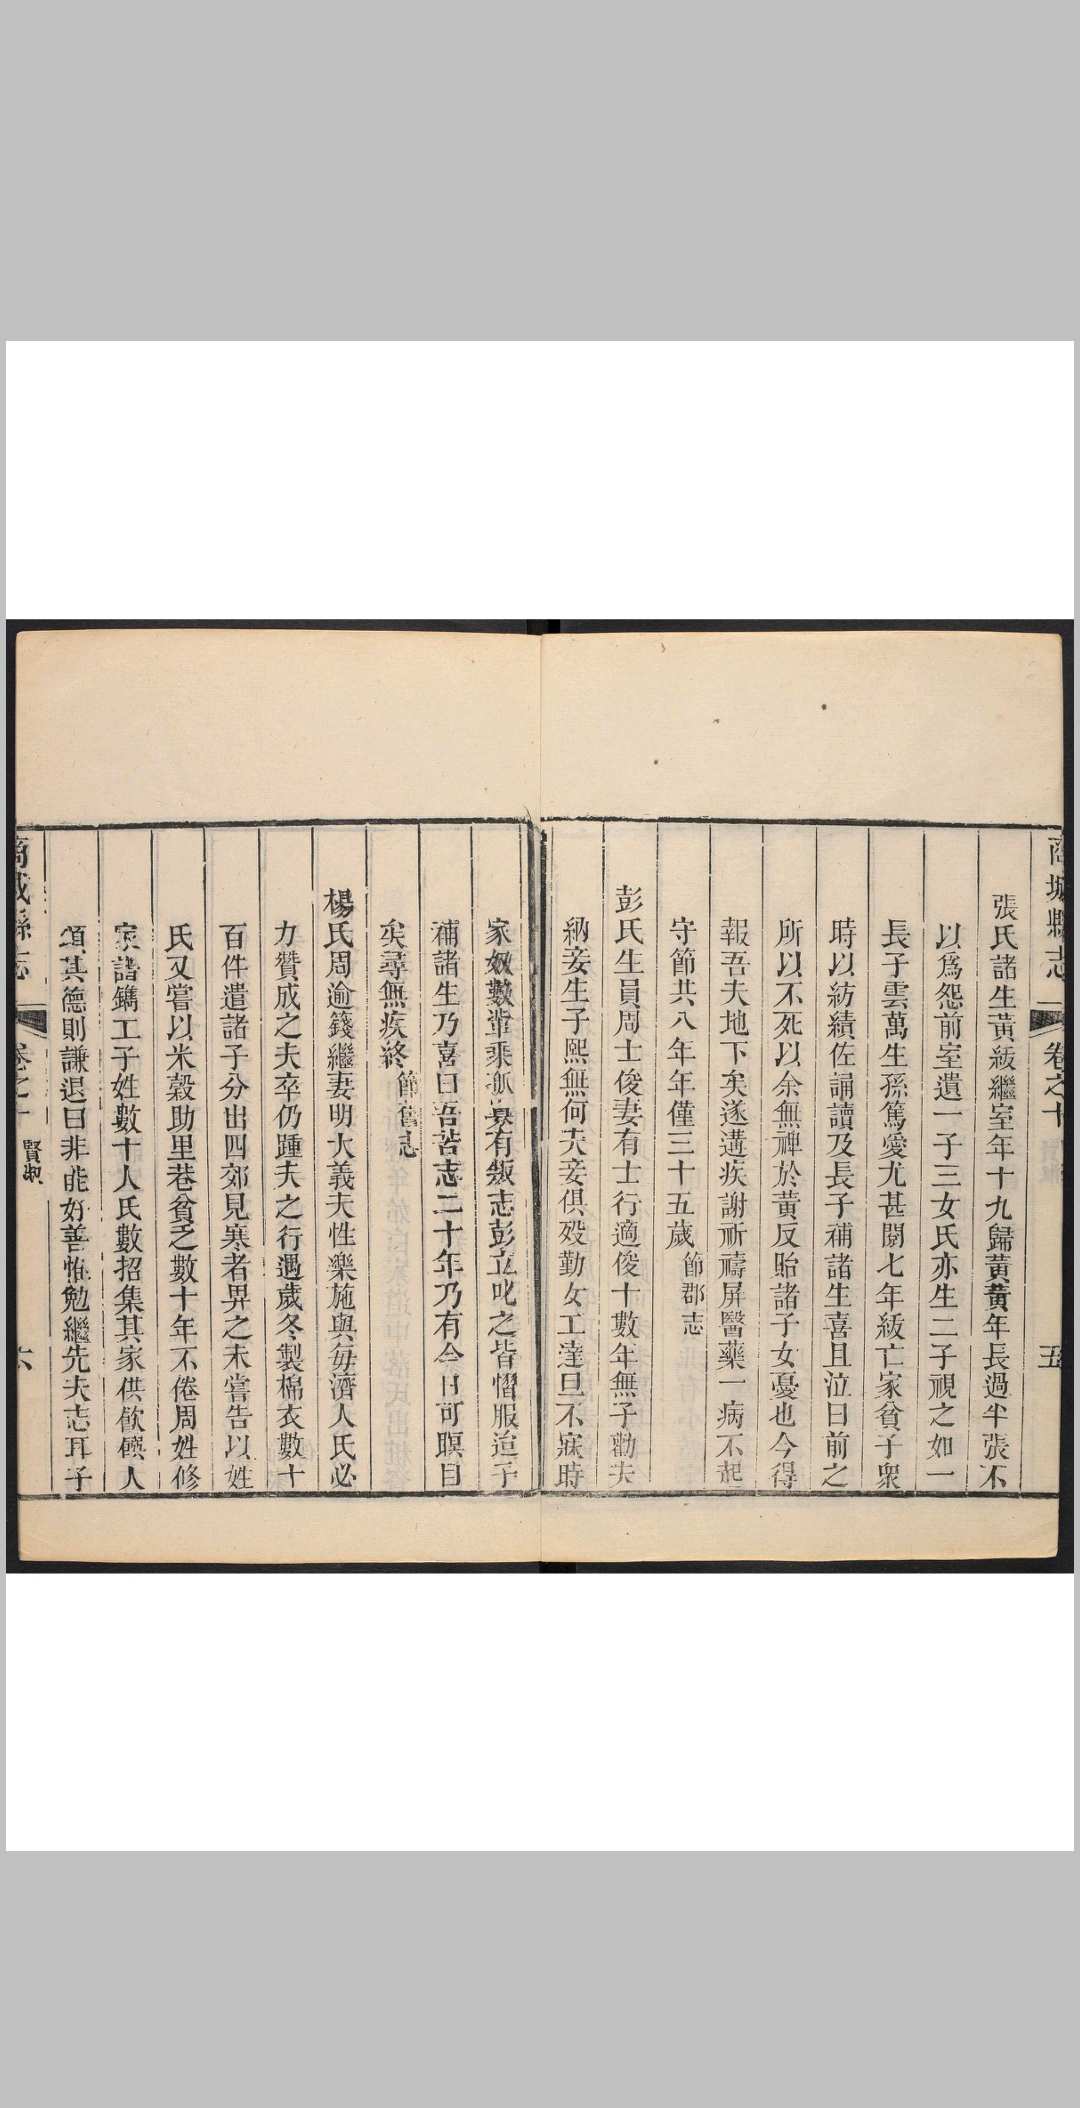 商城縣志
卷之十
五
張氏諸生黃紱繼室年十九歸黃黃年長過半張不
以爲怨前室遺一子三女氏亦生二子視之如一
長子雲萬生孫篤愛尤甚閱七年紱亡家貧子衆
時以紡績佐誦讀及長子補諸生喜且泣曰前之
所以不死以余無裨於黃反貽諸子女憂也今得
報吾夫地下矣遂遘疾謝祈禱屏醫藥一病不起
守節共八年年僅三十五歲節郡志
彭氏生員周士俊妻有士行適俊十數年無子勸夫
納妾生子熙無何夫妾俱歿勤女工達旦不寐時
家奴數輩乘有叛志彭立叱之皆慴服迨子
補諸生乃喜曰吾苦志二十年乃有今日可瞑目
矣尋無疾終節舊志
楊氏周逾籛繼妻明大義夫性樂施與每濟人氏必
力贊成之夫卒仍踵夫之行遇歲冬製棉衣數十
百件遣諸子分出四郊見寒者畀之未嘗告以姓
氏又嘗以米穀助里巷貧乏數十年不倦周姓修
家譜鐫工子姓數十人氏數招集其家供飲饌人
頌其德則謙退曰非能好善惟勉繼先夫志耳子
商城縣志
卷之十
賢淑
六